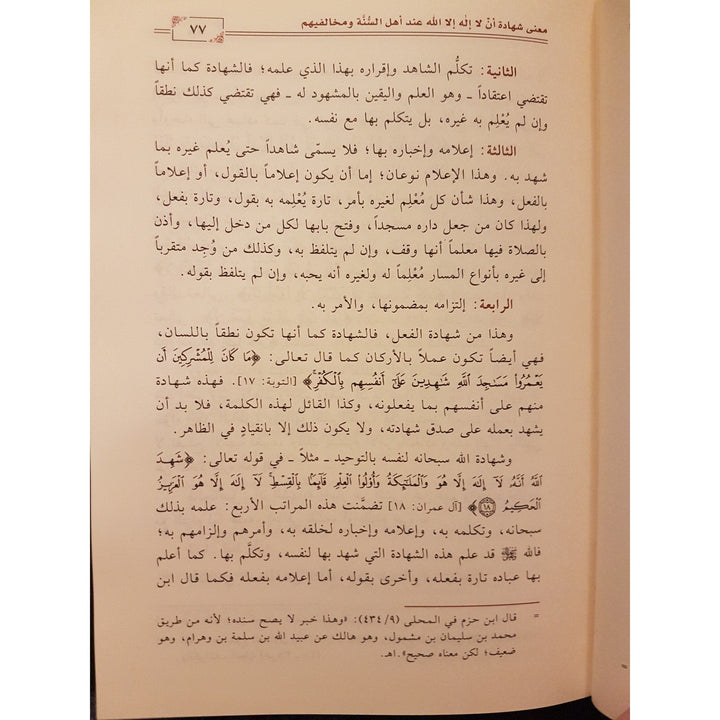 معنى شهادة أنْ لا إله إلا الله عند أهل السُّنَّة ومخالفيهم
٧٧
الثانية: تكلُّم الشاهد وإقراره بهذا الذي علمه؛ فالشهادة كما أنها
تقتضي اعتقاداً ـ وهو العلم واليقين بالمشهود له ـ فهي تقتضي كذلك نطقاً
وإن لم يُعْلِم به غيره، بل يتكلم بها مع نفسه.
الثالثة: إعلامه وإخباره بها؛ فلا يسمّى شاهداً حتى يُعلم غيره بما
شهد به. وهذا الإعلام نوعان؛ إما أن يكون إعلاماً بالقول، أو إعلاماً
بالفعل، وهذا شأن كل مُعْلِم لغيره بأمر، تارة يُعْلِمه به بقول، وتارة بفعل،
ولهذا كان من جعل داره مسجداً، وفتح بابها لكل من دخل إليها، وأذن
بالصلاة فيها معلماً أنها وقف، وإن لم يتلفظ به، وكذلك من وُجِد متقرباً
إلى غيره بأنواع المسار مُعْلِماً له ولغيره أنه يحبه، وإن لم يتلفظ بقوله.
الرابعة: إلتزامه بمضمونها، والأمر به.
وهذا من شهادة الفعل، فالشهادة كما أنها تكون نطقاً باللسان،
فهي أيضاً تكون عملاً بالأركان كما قال تعالى: ﴿مَا كَانَ لِلْمُشْرِكِينَ أَن
يَعْمُرُوا۟ مَسَـٰجِدَ ٱللَّهِ شَـٰهِدِينَ عَلَىٰٓ أَنفُسِهِم بِٱلْكُفْرِ ۚ﴾ [التوبة: ١٧]. فهذه شهادة
منهم على أنفسهم بما يفعلونه، وكذا القائل لهذه الكلمة، فلا بد أن
يشهد بعمله على صدق شهادته، ولا يكون ذلك إلا بانقيادٍ في الظاهر.
وشهادة الله سبحانه لنفسه بالتوحيد ـ مثلاً ـ في قوله تعالى: ﴿شَهِدَ
ٱللَّهُ أَنَّهُۥ لَآ إِلَـٰهَ إِلَّا هُوَ وَٱلْمَلَـٰٓئِكَةُ وَأُو۟لُوا۟ ٱلْعِلْمِ قَآئِمًۢا بِٱلْقِسْطِ ۚ لَآ إِلَـٰهَ إِلَّا هُوَ ٱلْعَزِيزُ
ٱلْحَكِيمُ ١٨﴾ [آل عمران: ١٨] تضمَّنت هذه المراتب الأربع: علمه بذلك
سبحانه، وتكلمه به، وإعلامه وإخباره لخلقه به، وأمرهم وإلزامهم به؛
فالله ﷻ قد علم هذه الشهادة التي شهد بها لنفسه، وتكلَّم بها. كما أعلم
بها عباده تارة بفعله، وأخرى بقوله، أما إعلامه بفعله فكما قال ابن
= قال ابن حزم في المحلى (٤٣٤/٩): «وهذا خبر لا يصح سنده؛ لأنه من طريق
محمد بن سليمان بن مشمول، وهو هالك عن عبيد الله بن سلمة بن وهرام، وهو
ضعيف؛ لكن معناه صحيح».اهـ.